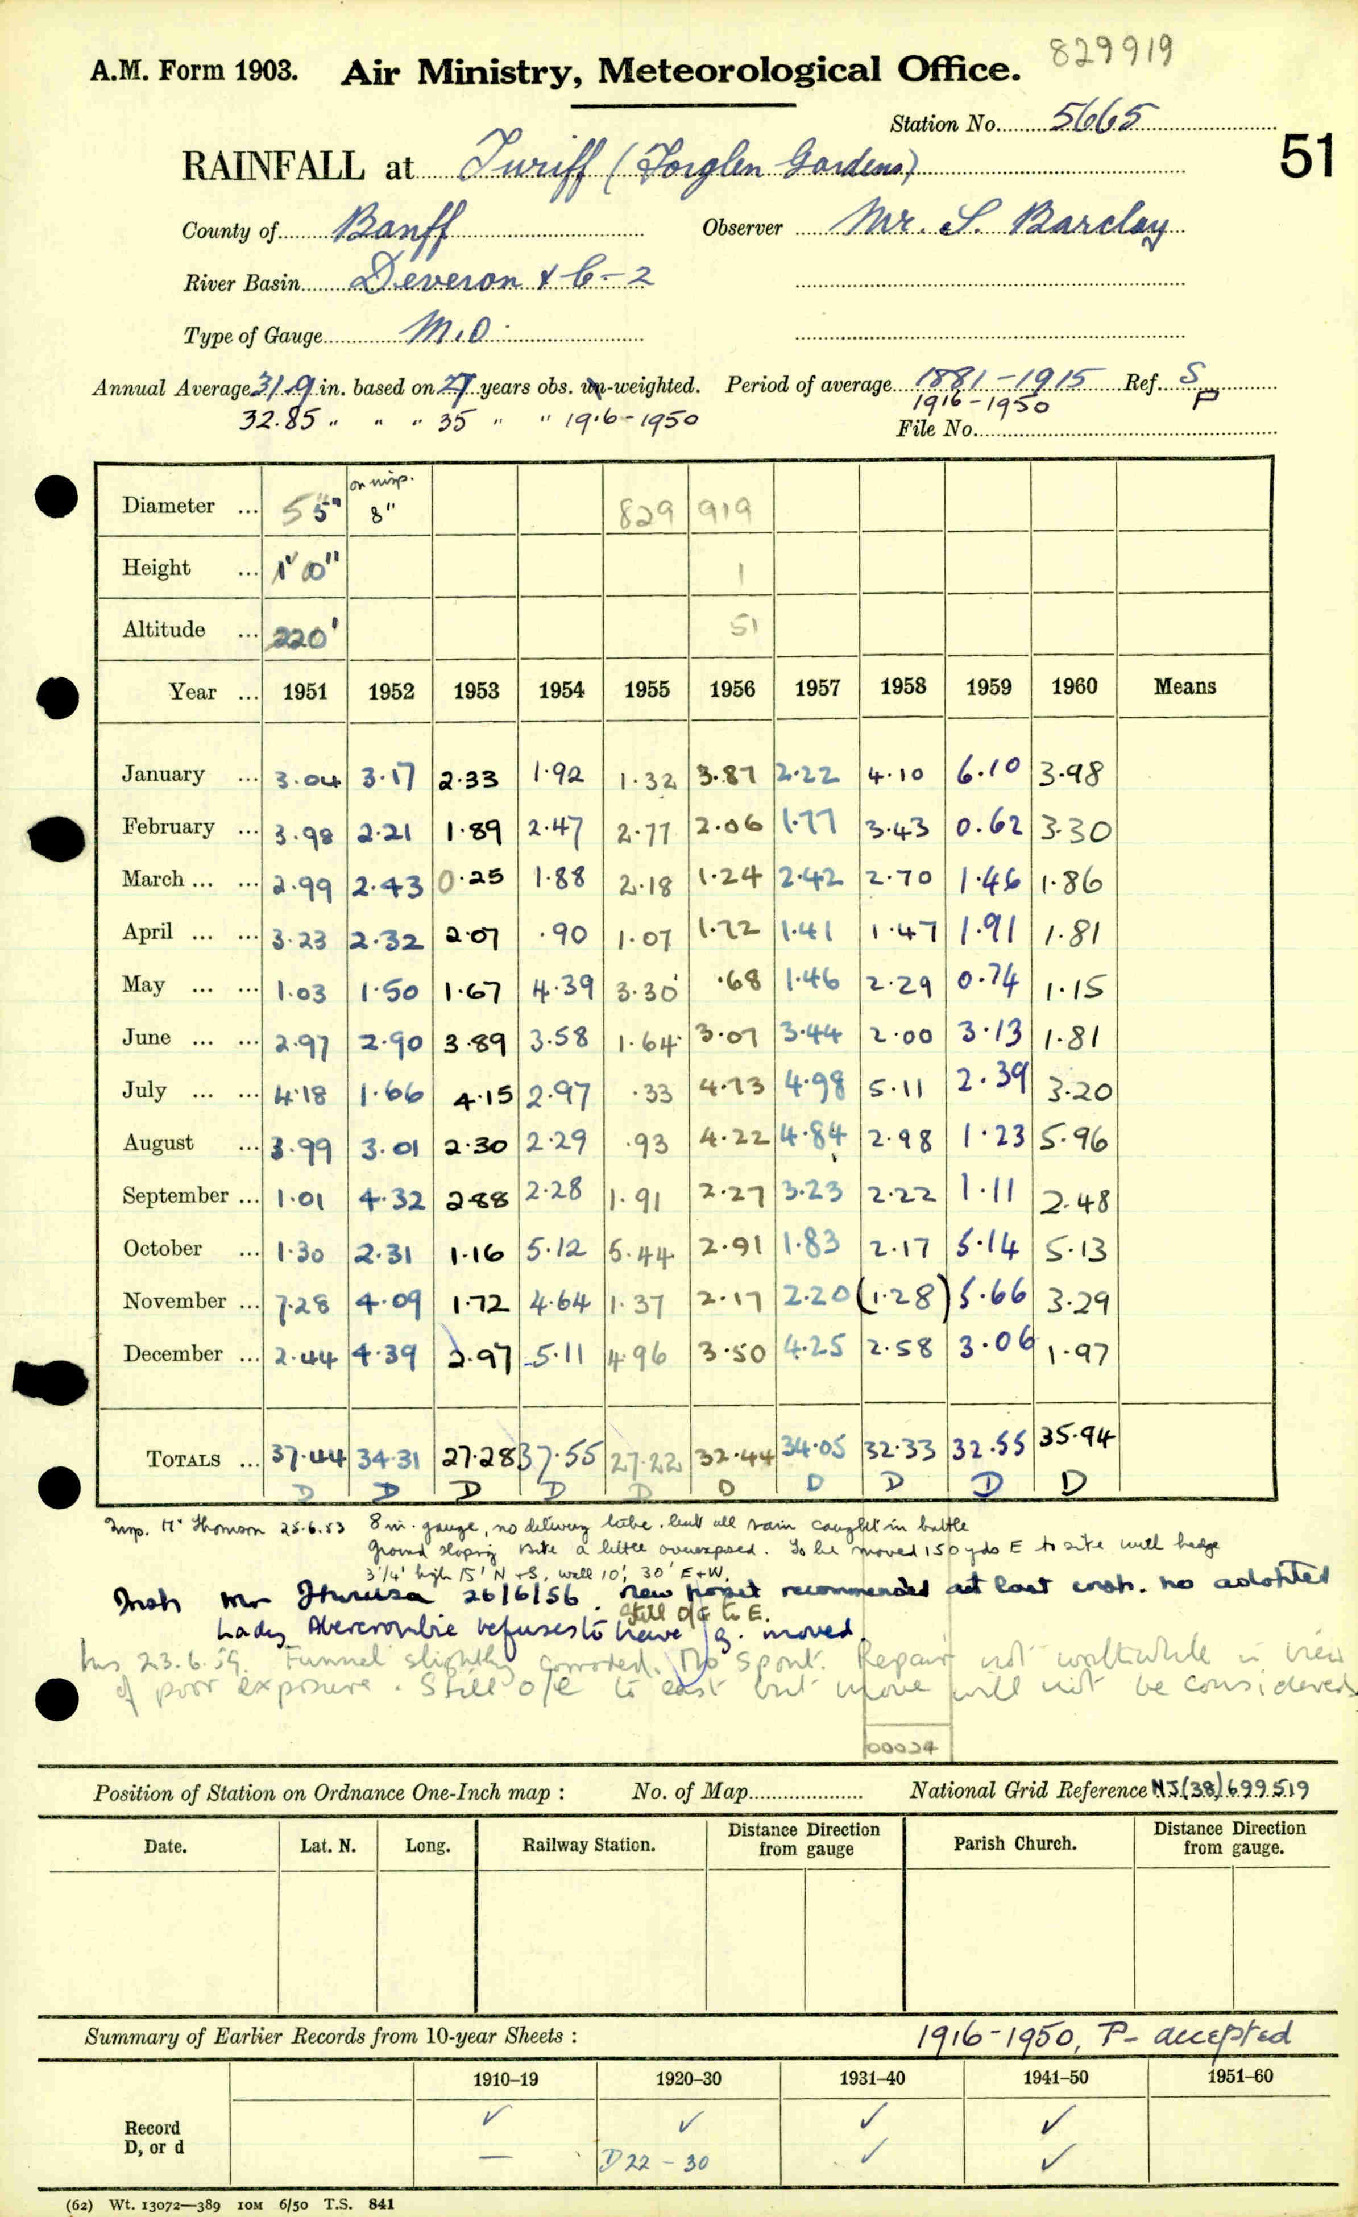 829919
A.M. Form 1903. Air Ministry, Meteorological Office.
Station No. 5665
51
RAINFALL at Turiff (Forglen Gardens)
County of Banff Observer Mr. S. Barclay
River Basin Deveron & C-2
Type of Gauge M.O.
Annual Average 31.9 in. based on 27 years obs. un-weighted. Period of average 1881-1915 Ref. S
32.85 " " " 35 " " 1916-1950 1916-1950 P
File No.
on insp.
Diameter ... 5 5" 8" 829 919
Height ... 1' 0" 1
Altitude ... 220' 51
Year ... 1951 1952 1953 1954 1955 1956 1957 1958 1959 1960 Means
January ... 3.04 3.17 2.33 1.92 1.32 3.87 2.22 4.10 6.10 3.98
February ... 3.98 2.21 1.89 2.47 2.77 2.06 1.77 3.43 0.62 3.30
March ... ... 2.99 2.43 0.25 1.88 2.18 1.24 2.42 2.70 1.46 1.86
April ... ... 3.23 2.32 2.07 .90 1.07 1.72 1.41 1.47 1.91 1.81
May ... ... 1.03 1.50 1.67 4.39 3.30 .68 1.46 2.29 0.74 1.15
June ... ... 2.97 2.90 3.89 3.58 1.64 3.07 3.44 2.00 3.13 1.81
July ... ... 4.18 1.66 4.15 2.97 .33 4.73 4.98 5.11 2.39 3.20
August ... 3.99 3.01 2.30 2.29 .93 4.22 4.84 2.98 1.23 5.96
September ... 1.01 4.32 2.88 2.28 1.91 2.27 3.23 2.22 1.11 2.48
October ... 1.30 2.31 1.16 5.12 5.44 2.91 1.83 2.17 5.14 5.13
November ... 7.28 4.09 1.72 4.64 1.37 2.17 2.20 (1.28) 5.66 3.29
December ... 2.44 4.39 2.97 5.11 4.96 3.50 4.25 2.58 3.06 1.97
TOTALS ... 37.44 34.31 27.28 37.55 27.22 32.44 34.05 32.33 32.55 35.94
D D D D D D D D D D
Insp. Mr Thomson 25.6.53 8 in. gauge, no delivery tube, but all rain caught in bottle
Ground sloping site a little overexposed. To be moved 150 yds E to site with hedge
3'/4' high 15' N+S, wall 10', 30' E+W.
Insp Mr 26/6/56. new recommended at last insp. no adopted
Still o/e to E.
Lady Abercrombie refuses to have g. moved.
Ins 23.6.59. Funnel slightly corroded. No spout. Repair not worthwhile in view
of poor exposure. Still o/e to east but move will not be considered
00024
Position of Station on Ordnance One-Inch map : No. of Map National Grid Reference NJ(38)699519
Date. Lat. N. Long. Railway Station. Distance Direction from gauge Parish Church. Distance Direction from gauge.
Summary of Earlier Records from 10-year Sheets : 1916-1950, P- accepted
1910–19 1920–30 1931–40 1941–50 1951–60
Record ✓ ✓ ✓ ✓
D, or d — D22-30 ✓ ✓
(62) Wt. 13072—389 10M 6/50 T.S. 841